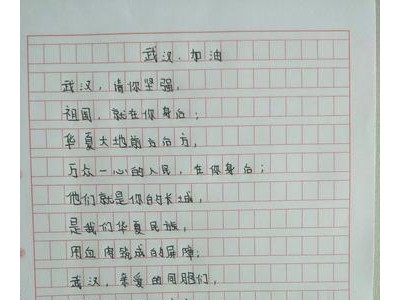 武汉，加油
武汉，请你坚强，
祖国，就在你身后；
华夏大地前方后方，
万众一心的人民，在你身后；
他们就是你的长城，
是我们华夏民族，
用血肉筑成的屏障；
武汉，亲爱的同胞们，